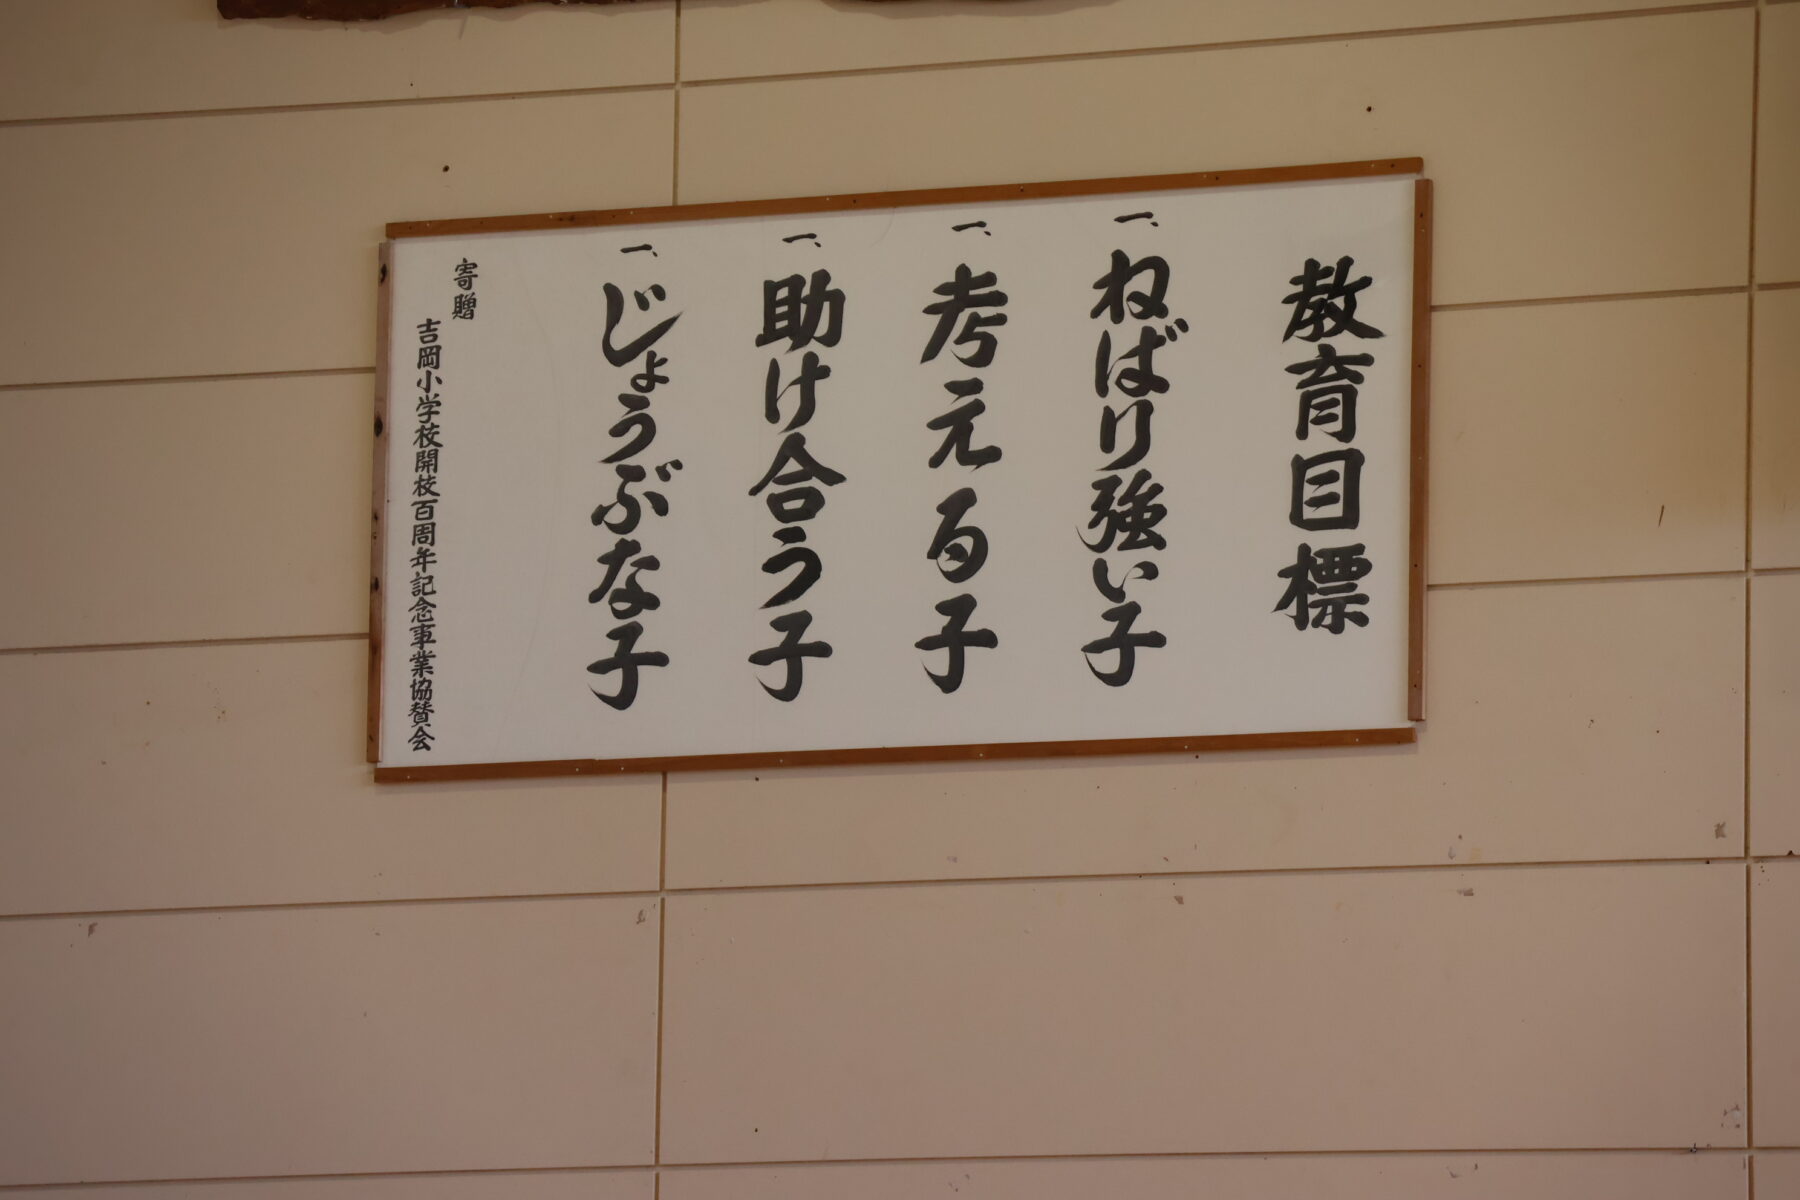 教育目標
一、ねばり強い子
一、考える子
一、助け合う子
一、じょうぶな子
寄贈
吉岡小学校開校百周年記念事業協賛会